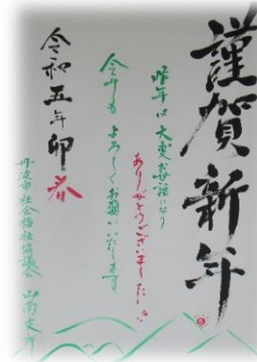 謹賀新年
昨年は大変お世話になり
ありがとうございました
今年もよろしくお願いいたします
令和五年卯春
丹波市社会福祉協議会 山南支所